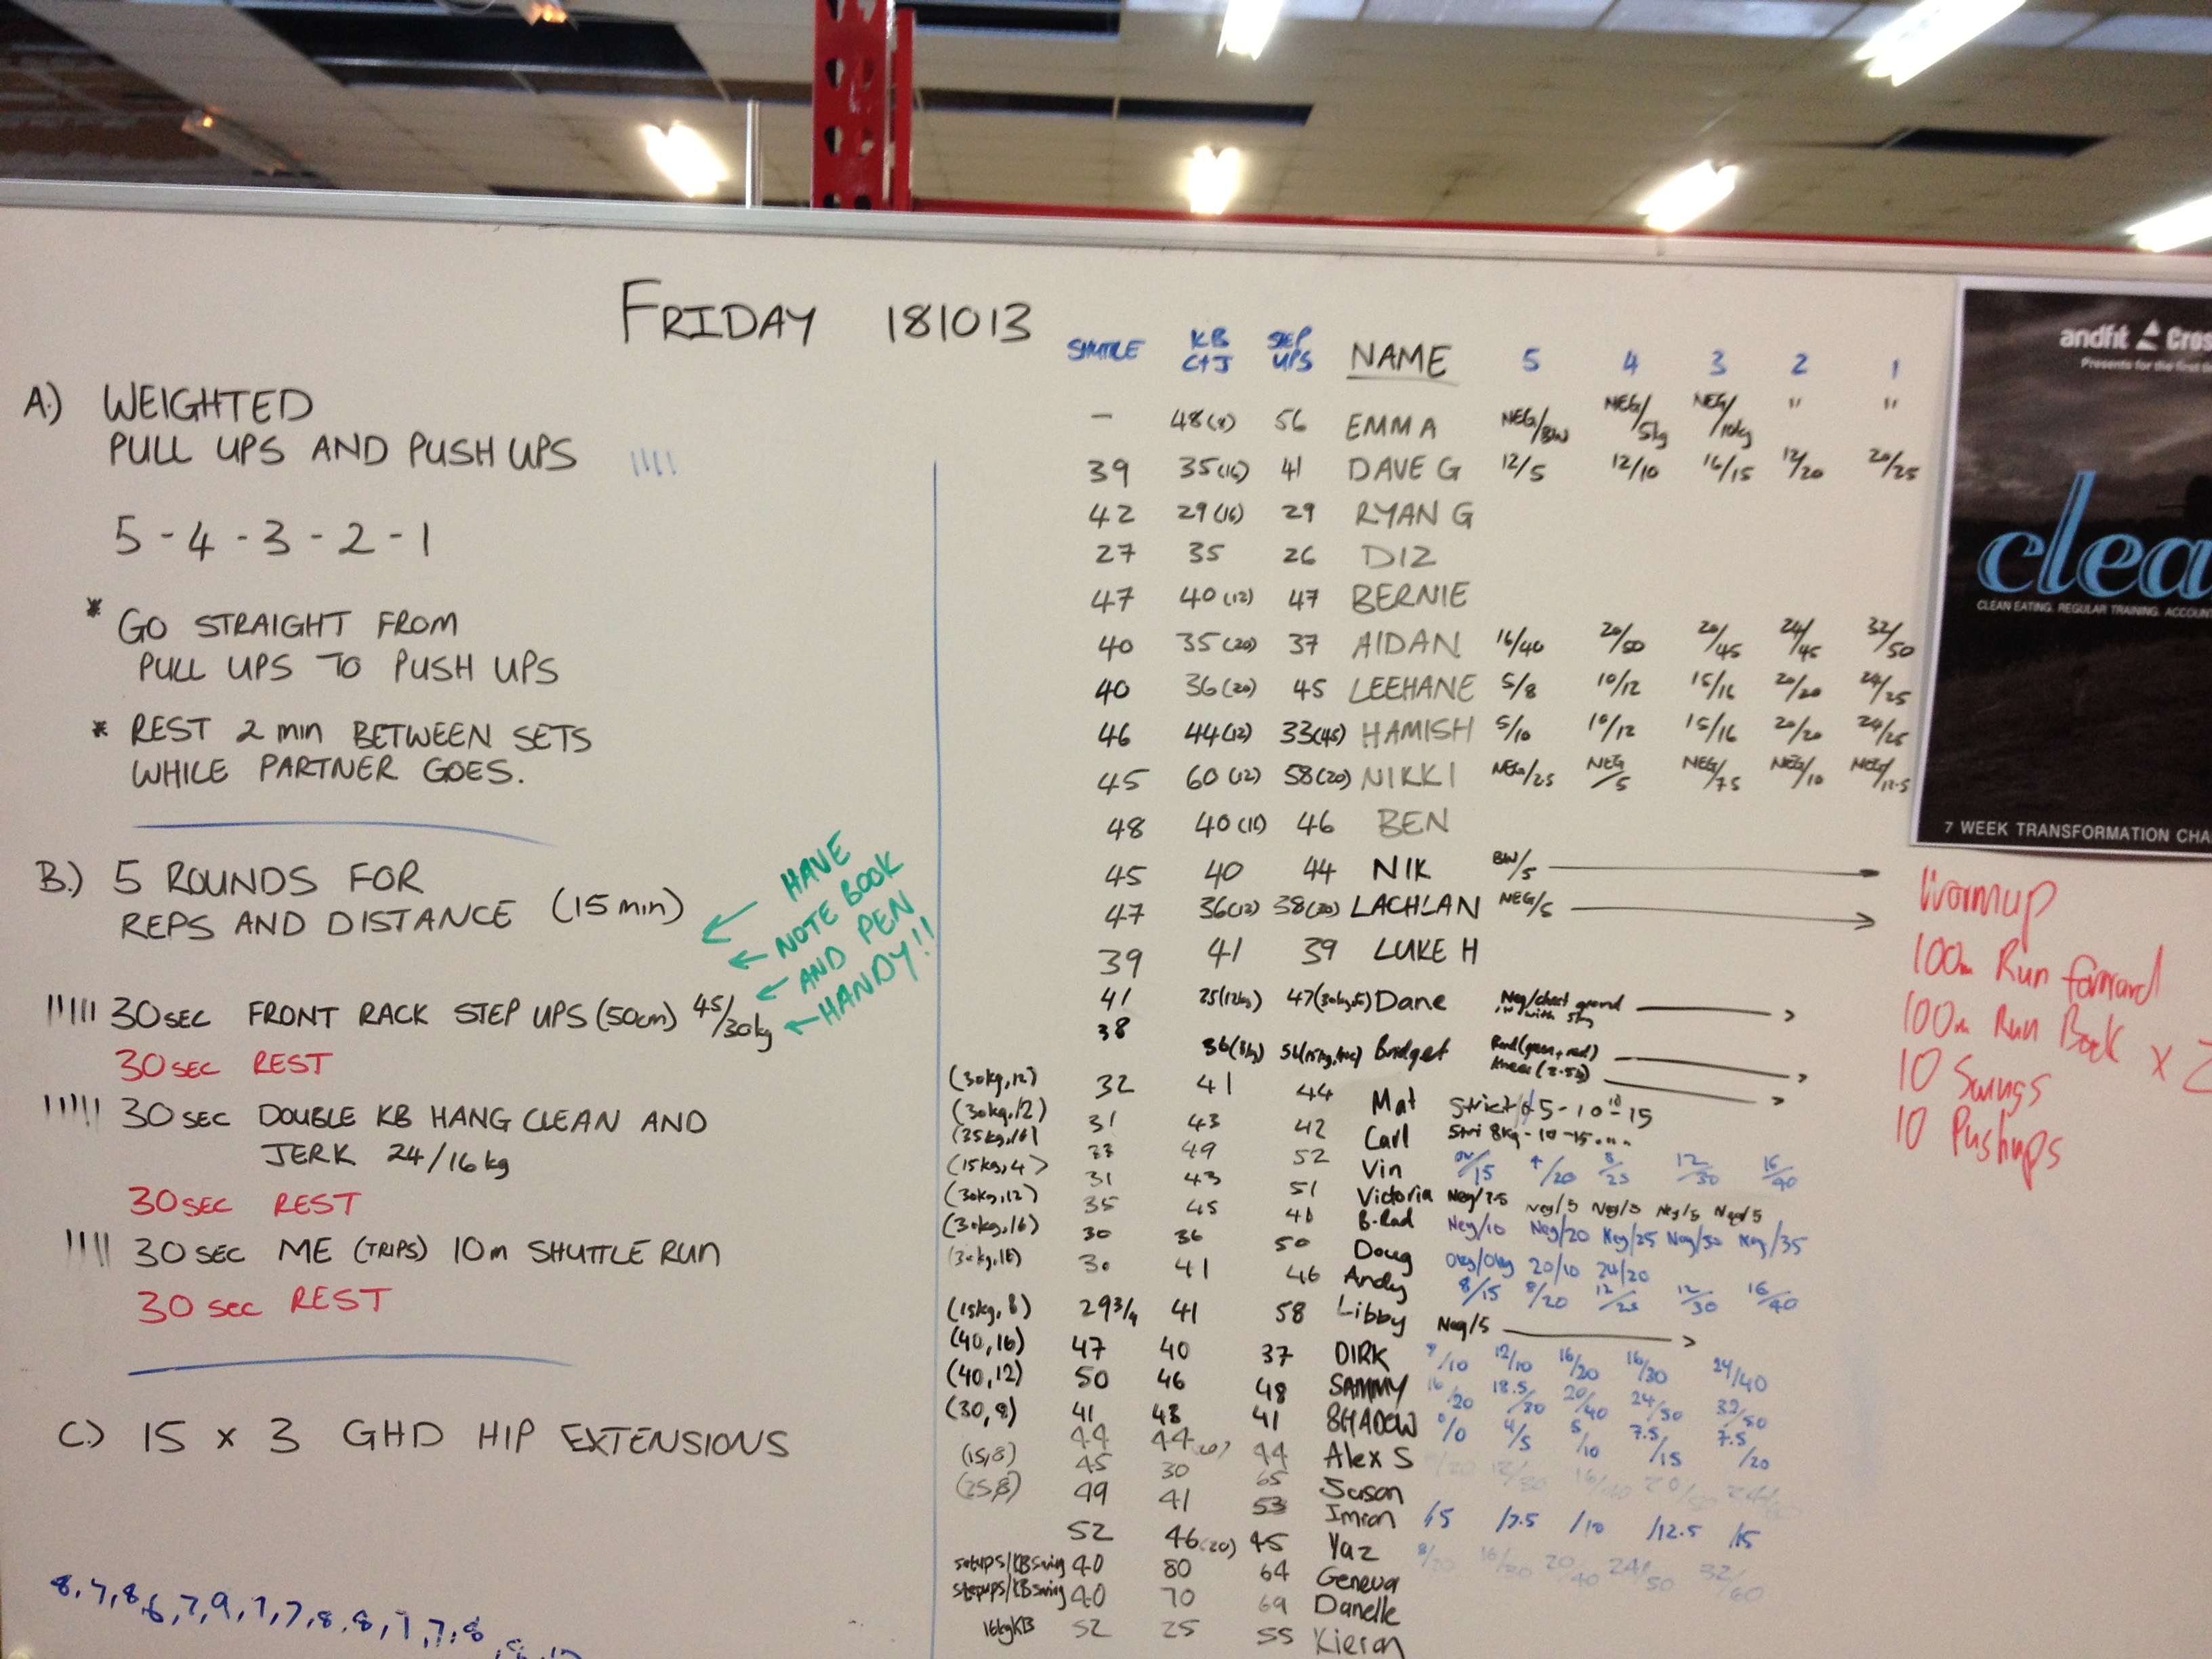 FRIDAY 181013
A.) WEIGHTED
PULL UPS AND PUSH UPS
5 - 4 - 3 - 2 - 1
* GO STRAIGHT FROM
PULL UPS TO PUSH UPS
* REST 2 min BETWEEN SETS
WHILE PARTNER GOES.
B.) 5 ROUNDS FOR
REPS AND DISTANCE (15 min)
HAVE
NOTE BOOK
AND PEN
HANDY!!
30 SEC FRONT RACK STEP UPS (50cm) 45/30kg
30 SEC REST
30 SEC DOUBLE KB HANG CLEAN AND
JERK 24/16 kg
30 SEC REST
30 SEC ME (TRIPS) 10m SHUTTLE RUN
30 sec REST
C.) 15 x 3 GHD HIP EXTENSIONS
8,7,8,6,7,9,7,7,8,8,7,7,8
SHUTTLE KB C+J STEP UPS NAME 5 4 3 2 1
- 48(8) 56 EMMA NEG/BW NEG/5kg NEG/10kg " "
39 35(16) 41 DAVE G 12/5 12/10 16/15 12/20 20/25
42 29(16) 29 RYAN G
27 35 26 DIZ
47 40(12) 47 BERNIE
40 35(20) 37 AIDAN 16/40 20/50 20/45 24/45 32/50
40 36(20) 45 LEEHANE 5/8 10/12 15/16 20/20 24/25
46 44(12) 33(45) HAMISH 5/10 10/12 15/16 20/20 24/25
45 60(12) 58(20) NIKKI NEG/2.5 NEG/5 NEG/7.5 NEG/10 NEG/12.5
48 40 46 BEN
45 40 44 NIK BW/5
47 36(12) 38(30) LACHLAN NEG/5
39 41 39 LUKE H
41 25(12kg) 47 Dane Neg/chest ground with 5kg
38 36(8kg) Bridget Band(green+red) Knees(2.5kg)
(30kg,12) 32 41 44 Mat Strict 5-10-15
(30kg,12) 31 43 42 Carl 8kg-10-15....
(35kg,16) 33 49 52 Vin /15 4/20 8/25 12/30 16/40
(15kg,4) 31 43 51 Victoria Neg/2.5 Neg/5 Neg/5 Neg/5 Neg/5
(30kg,12) 35 45 B-Rad Neg/10 Neg/20 Neg/25 Neg/30 Neg/35
(30kg,16) 30 36 50 Doug 0kg/0kg 20/10 24/20
(30kg,16) 30 41 46 Andy 8/15 8/20 12/25 12/30 16/40
(15kg,8) 29 3/4 41 58 Libby Neg/5
(40,16) 47 40 37 DIRK 8/10 12/10 16/20 16/30 24/40
(40,12) 50 46 48 SAMMY 16/20 18.5/30 20/40 24/50 32/50
(30,8) 41 43 41 SHADOW 0/0 4/5 5/10 7.5/15 7.5/20
44 44 44 Alex S
(15,8) 45 30 65 Susan
(25,8) 49 41 53 Imron /5 /7.5 /10 /12.5 /15
52 46(20) 45 Yaz 8/20 16/30 20/40 24/50 32/60
setups/KB swing 40 80 64 Geneva
stepups/KB swing 40 70 69 Danelle
16kgKB 52 25 55 Kieran
andfit Cros
Presents for the first
clea
CLEAN EATING. REGULAR TRAINING. ACCOUN
7 WEEK TRANSFORMATION CHA
Warmup
100m Run forward
100m Run Back
10 Swings
10 Pushups
x 2